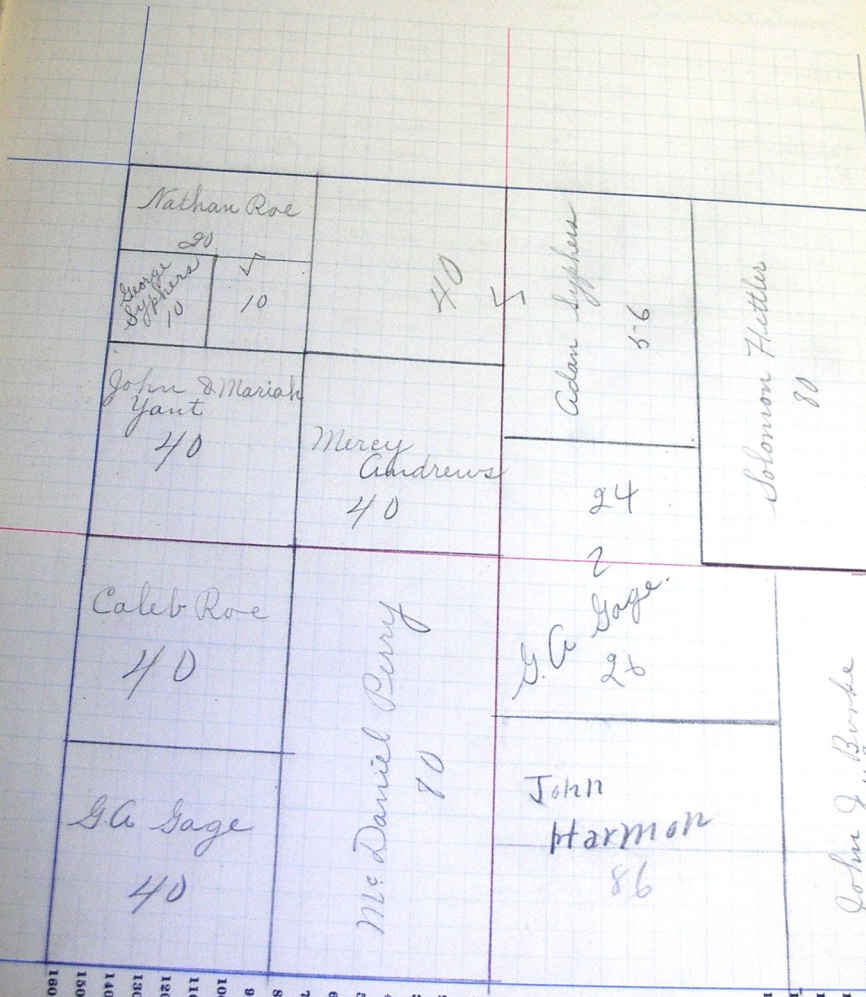 Nathan Roe
20
George
Syphers
10
10
40
Adan Syphers
56
Solomon Hettler
80
John & Mariah
Yant
40
Mercy
Andrews
40
24
Caleb Roe
40
G.A Gage.
26
Mc Daniel Perry
80
G.A Gage
40
John
Harmon
86
John
160
150
140
130
120
110
100